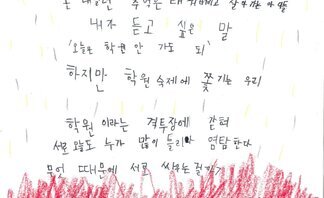 내가 듣고 싶은 말
'오늘은 학원 안 가도 돼'
하지만 학원 숙제에 쫓기는 우리
학원 이라는 격투장에 갇혀
서로 오늘도 누가 많이 틀리나 염탐한다
무엇 때문에 서로 싸우는 걸까?